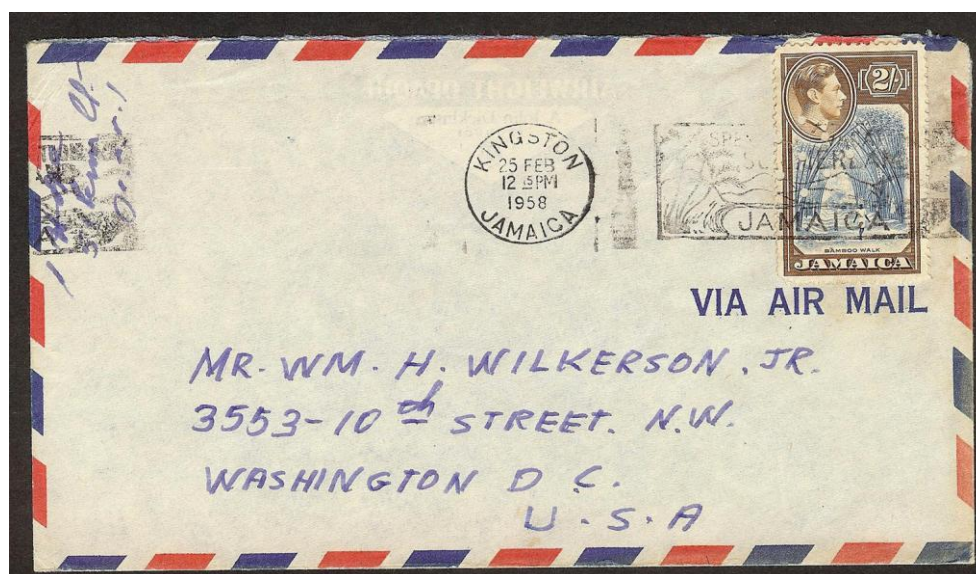 KINGSTON
25 FEB
12 15 PM
1958
JAMAICA
JAMAICA
2/-
BAMBOO WALK
JAMAICA
VIA AIR MAIL
MR. WM. H. WILKERSON, JR.
3553-10th STREET. N.W.
WASHINGTON D C.
U.S.A